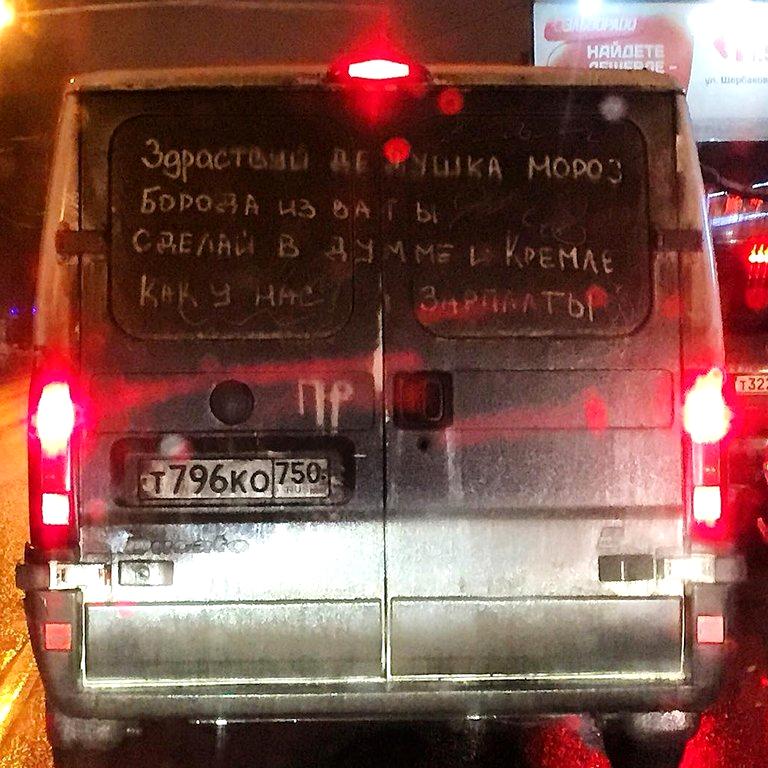 НАЙДЕТЕ
ДЕШЕВЛЕ -
ул. Щербаков
Здраствуй ДЕДУШКА МОРОЗ
БОРОДА ИЗ ВАТЫ
СДЕЛАЙ В ДУММЕ И КРЕМЛЕ
КАК У НАС ЗАРПЛАТЫ
ПР
Т796КО 750
RUS
Т322